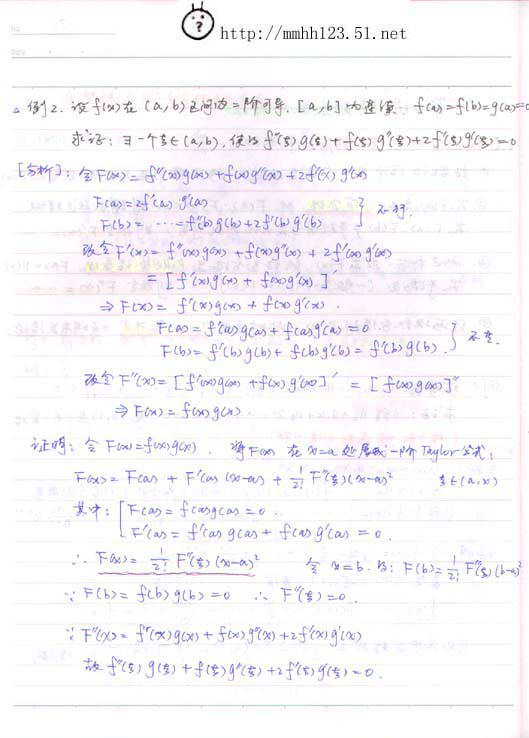 http://mmhh123.51.net
例2. 设f(x)在(a,b)之间为二阶可导. [a,b]内连续. f(a)=f(b)=g(a)=0
求证: ∃一个ξ∈(a,b), 使得f"(ξ)g(ξ)+f(ξ)g"(ξ)+2f'(ξ)g'(ξ)=0
[分析]: 令F(x)=f"(x)g(x)+f(x)g"(x)+2f'(x)g'(x)
F(a)=2f'(a)g'(a)
F(b)= ⋯=f"(b)g(b)+2f'(b)g'(b) } 不行.
改令F'(x)=f"(x)g(x)+f(x)g"(x)+2f'(x)g'(x)
=[f'(x)g(x)+f(x)g'(x)]'
⇒F(x)=f'(x)g(x)+f(x)g'(x).
F(a)=f'(a)g(a)+f(a)g'(a)=0.
F(b)=f'(b)g(b)+f(b)g'(b)=f'(b)g(b). }
改令F"(x)=[f'(x)g(x)+f(x)g'(x)]'=[f(x)g(x)]"
⇒F(x)=f(x)g(x).
证明: 令F(x)=f(x)g(x). 将F(x)在x=a处展成一阶Taylor公式:
F(x)=F(a)+F'(a)(x-a)+1/2! F"(ξ)(x-a)² ξ∈(a,x)
其中: F(a)=f(a)g(a)=0.
F'(a)=f'(a)g(a)+f(a)g'(a)=0.
∴ F(x)=1/2! F"(ξ)(x-a)² 令x=b. 得: F(b)=1/2! F"(ξ)(b-a)²
∵ F(b)=f(b)g(b)=0 ∴ F"(ξ)=0.
∵ F"(x)=f"(x)g(x)+f(x)g"(x)+2f'(x)g'(x)
故f"(ξ)g(ξ)+f(ξ)g"(ξ)+2f'(ξ)g'(ξ)=0.